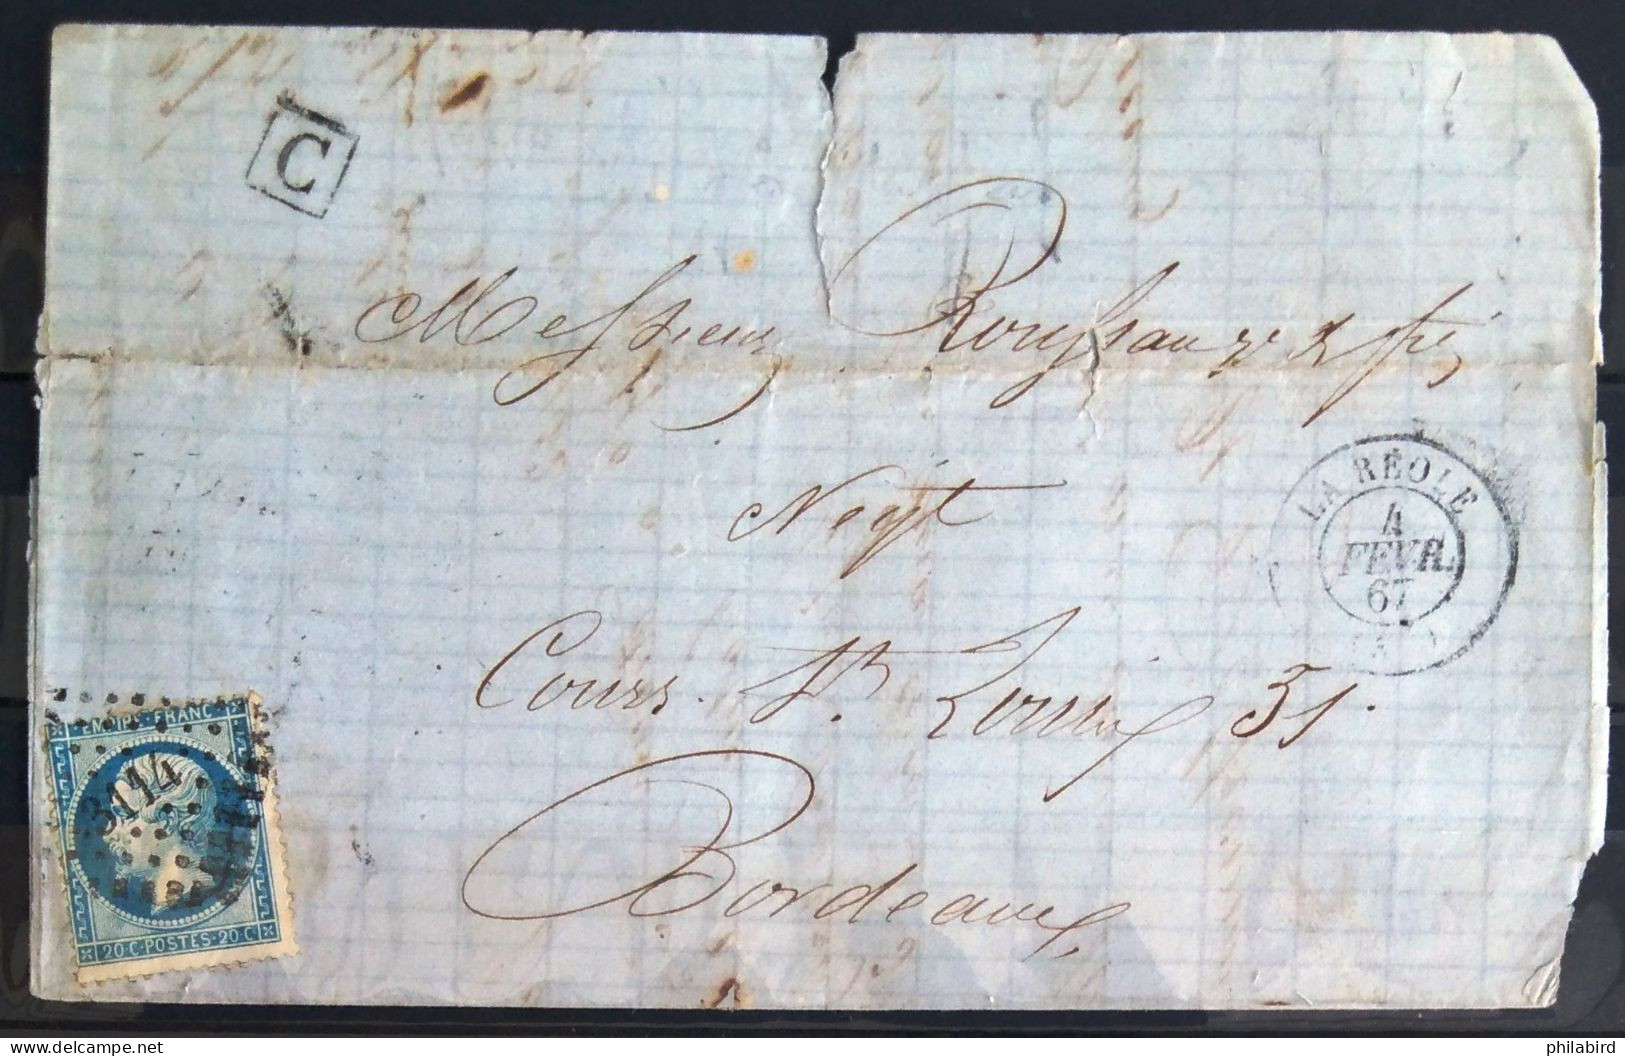 C
Messieurs
Neyt
LA RÉOLE
4
FEVR.
67
Cours St. Louis 31.
Bordeaux,
EMPIRE FRANC
3114
20·C·POSTES·20·C
philabird
delcampe.net